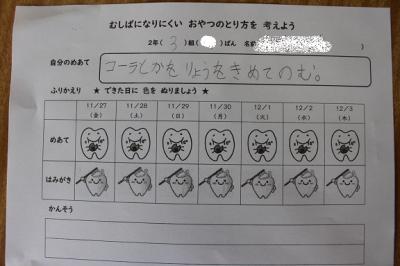 むしばになりにくい おやつのとり方を 考えよう
2年( 3 )組( )ばん 名前
自分のめあて
コーラとかをりょうをきめてのむ。
ふりかえり ★ できた日に 色を ぬりましょう ★
11/27 11/28 11/29 11/30 12/1 12/2 12/3
(金) (土) (日) (月) (火) (水) (木)
めあて
はみがき
かんそう